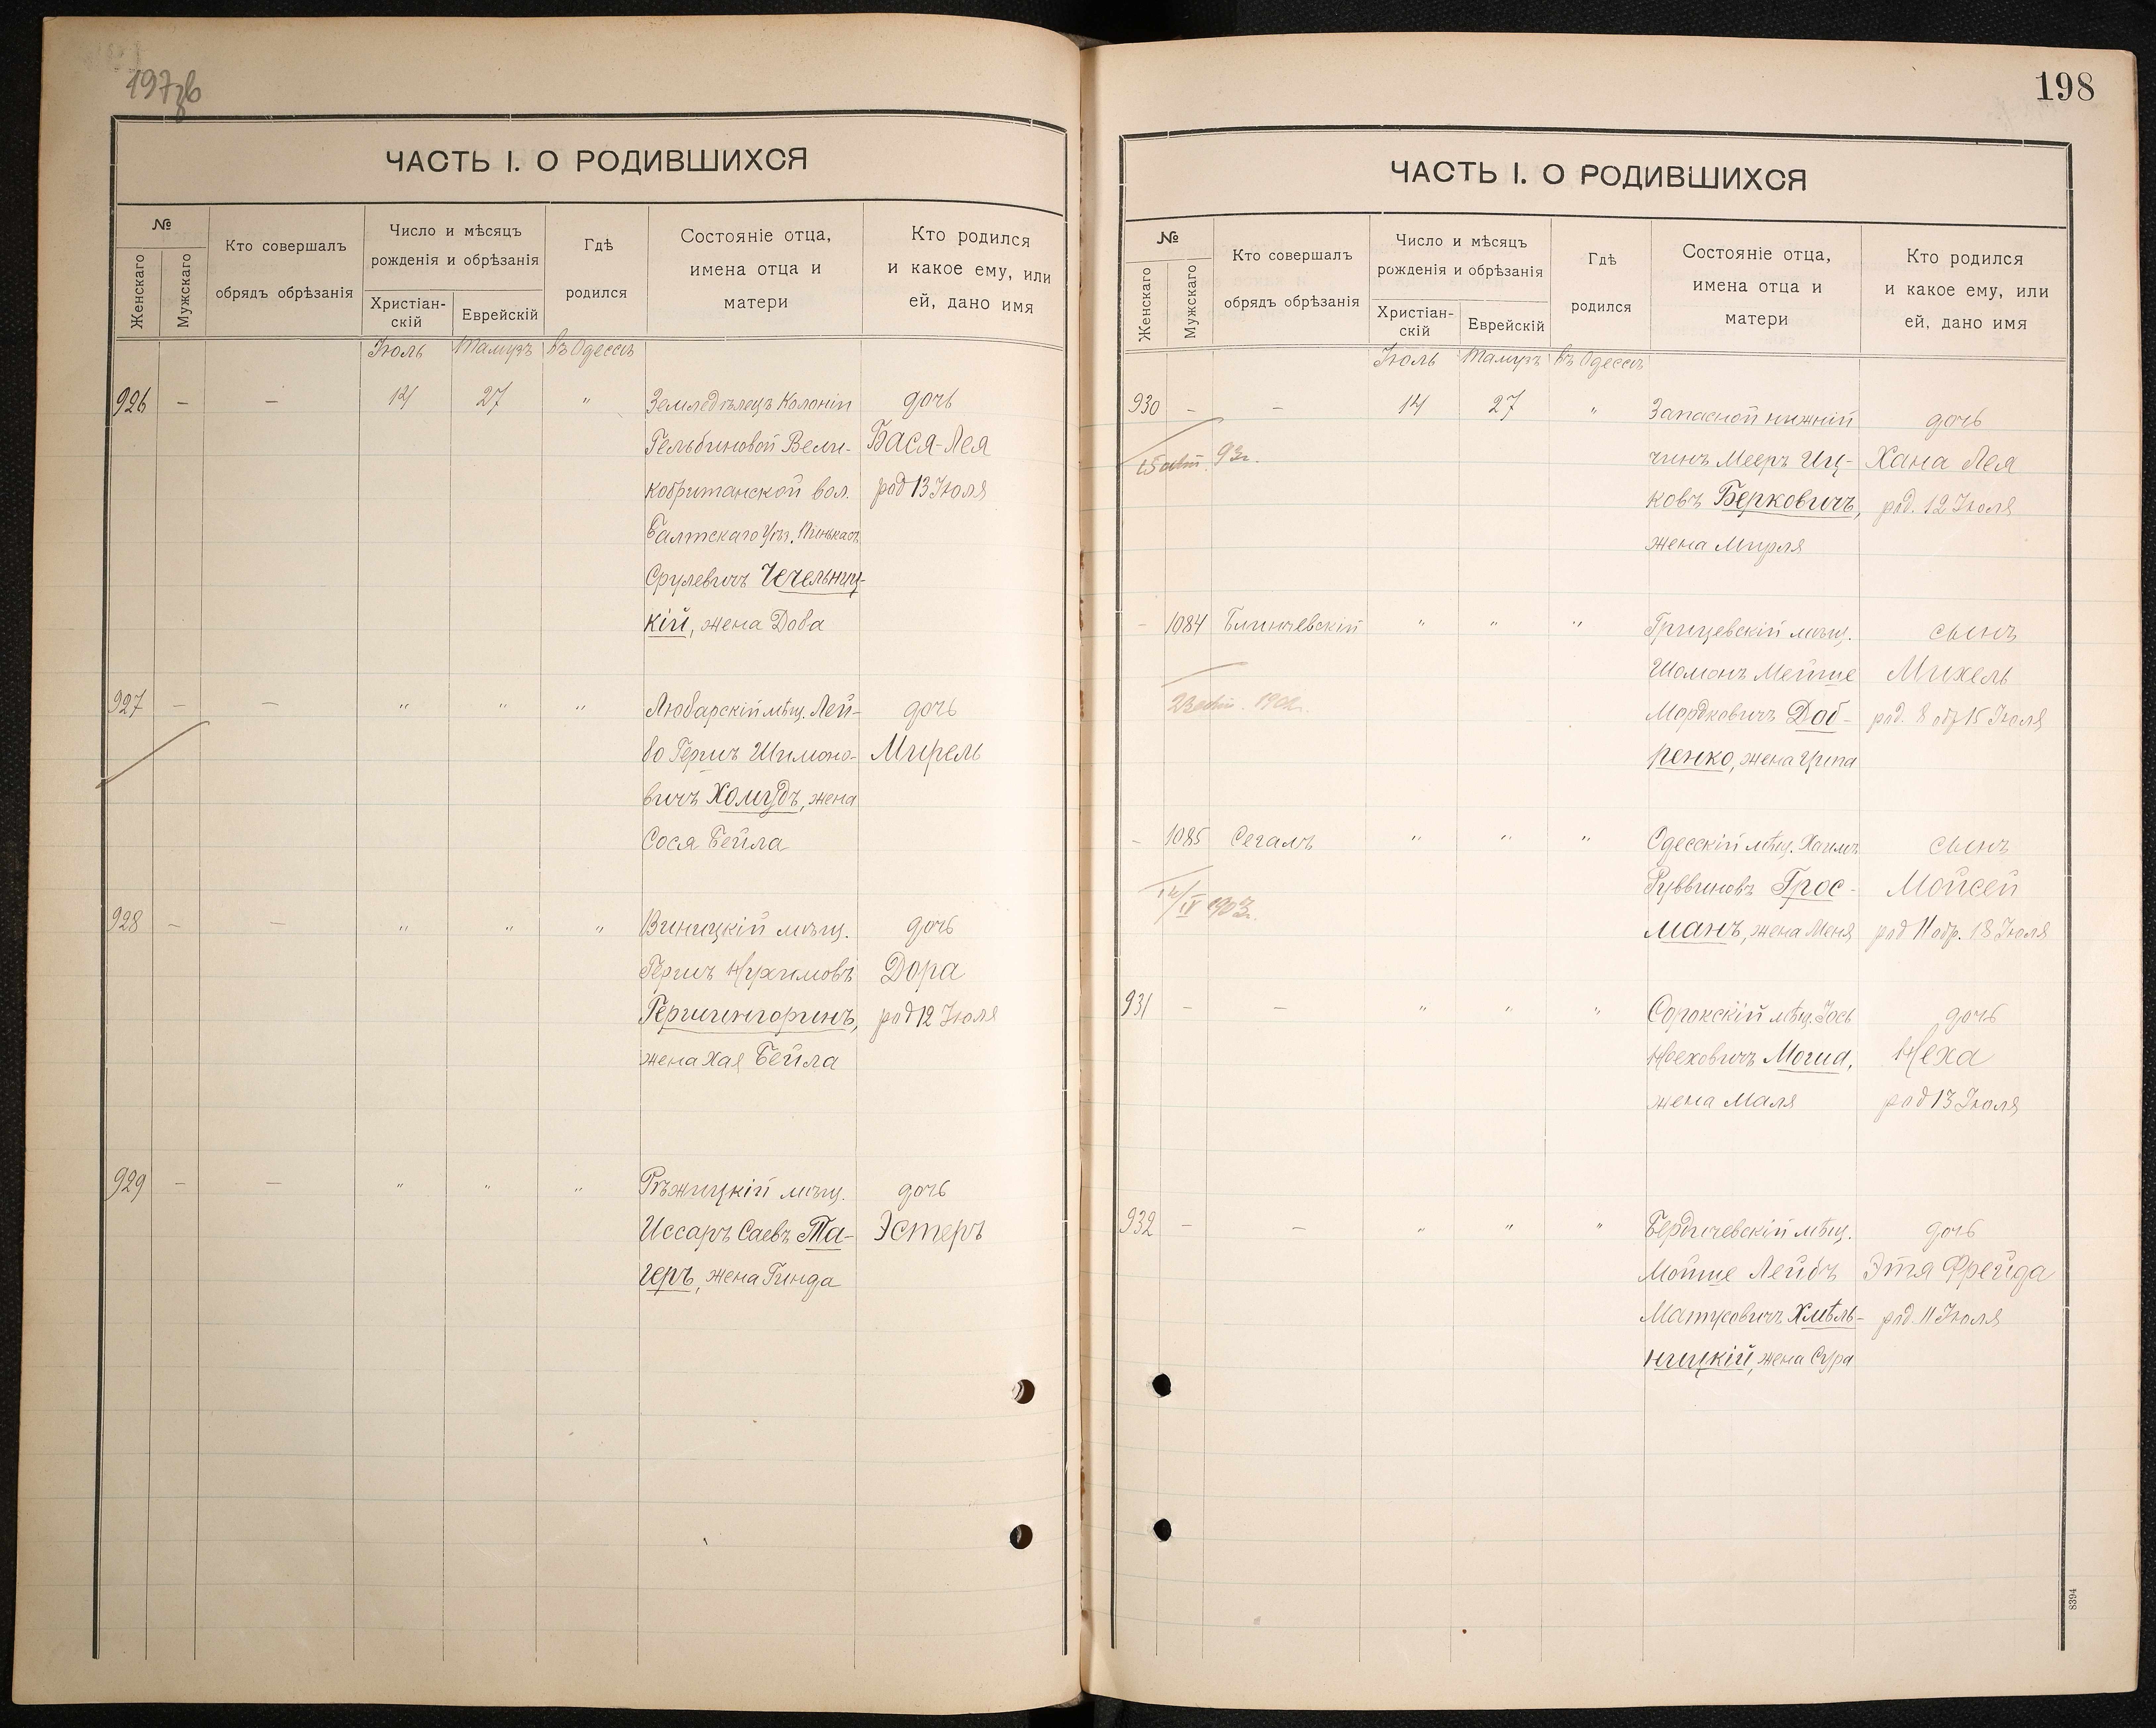 197зв
ЧАСТЬ I. О РОДИВШИХСЯ
№
Женскаго
Мужскаго
Кто совершалъ
обрядъ обрѣзанія
Число и мѣсяцъ
рожденія и обрѣзанія
Христіан-
скій
Еврейскій
Гдѣ
родился
Состояніе отца,
имена отца и
матери
Кто родился
и какое ему, или
ей, дано имя
Іюль Тамузъ въ Одессѣ
926 — — 14 27 " Земледѣлецъ Колоніи дочь
Гельбиновой Вели- Бася-Лея
кобританской вол. род 13 Іюля
Балтскаго Уѣз. Пинькасъ
Срулевичъ Чечельниц-
кій, жена Дова
927 — — " " " Любарскій мѣщ. Лей- дочь
ва Гершъ Шимоно- Мирель
вичъ Хомудъ, жена
Сося Бейла
928 — — " " " Виницкій мѣщ. дочь
Гершъ Нухимовъ Дора
Гершингоринъ, род 12 Іюля
жена Хая Бейла
929 — — " " " Рѣжицкій мѣщ. дочь
Иссаръ Саевъ Та- Эстеръ
геръ, жена Гинда
198
ЧАСТЬ I. О РОДИВШИХСЯ
№
Женскаго
Мужскаго
Кто совершалъ
обрядъ обрѣзанія
Число и мѣсяцъ
рожденія и обрѣзанія
Христіан-
скій
Еврейскій
Гдѣ
родился
Состояніе отца,
имена отца и
матери
Кто родился
и какое ему, или
ей, дано имя
Іюль Тамузъ въ Одессѣ
930 — — 14 27 " Запасной нижній дочь
чинъ Мееръ Иц- Хана Лея
ковъ Берковичъ, род. 12 Іюля
жена Мирля
— 1084 Блинчевскій " " " Грицевскій мѣщ. сынъ
Шоломъ Мейше Михель
Мордковичъ Доб- род. 8 обр 15 Іюля
ренко, жена Ципа
— 1085 Сегалъ " " " Одесскій мѣщ. Хаимъ сынъ
Рувиновъ Грос- Мойсей
14/IV 1903г.
манъ, жена Меня род 11 обр. 18 Іюля
931 — — " " " Сорокскій мѣщ. Іось дочь
Ноеховичъ Могил, Неха
жена Маля род 13 Іюля
932 — — " " " Бердичевскій мѣщ. дочь
Мойше Лейбъ Этя Фрейда
Матусовичъ Хмѣль- род. 11 Іюля
ницкій, жена Сура
8394